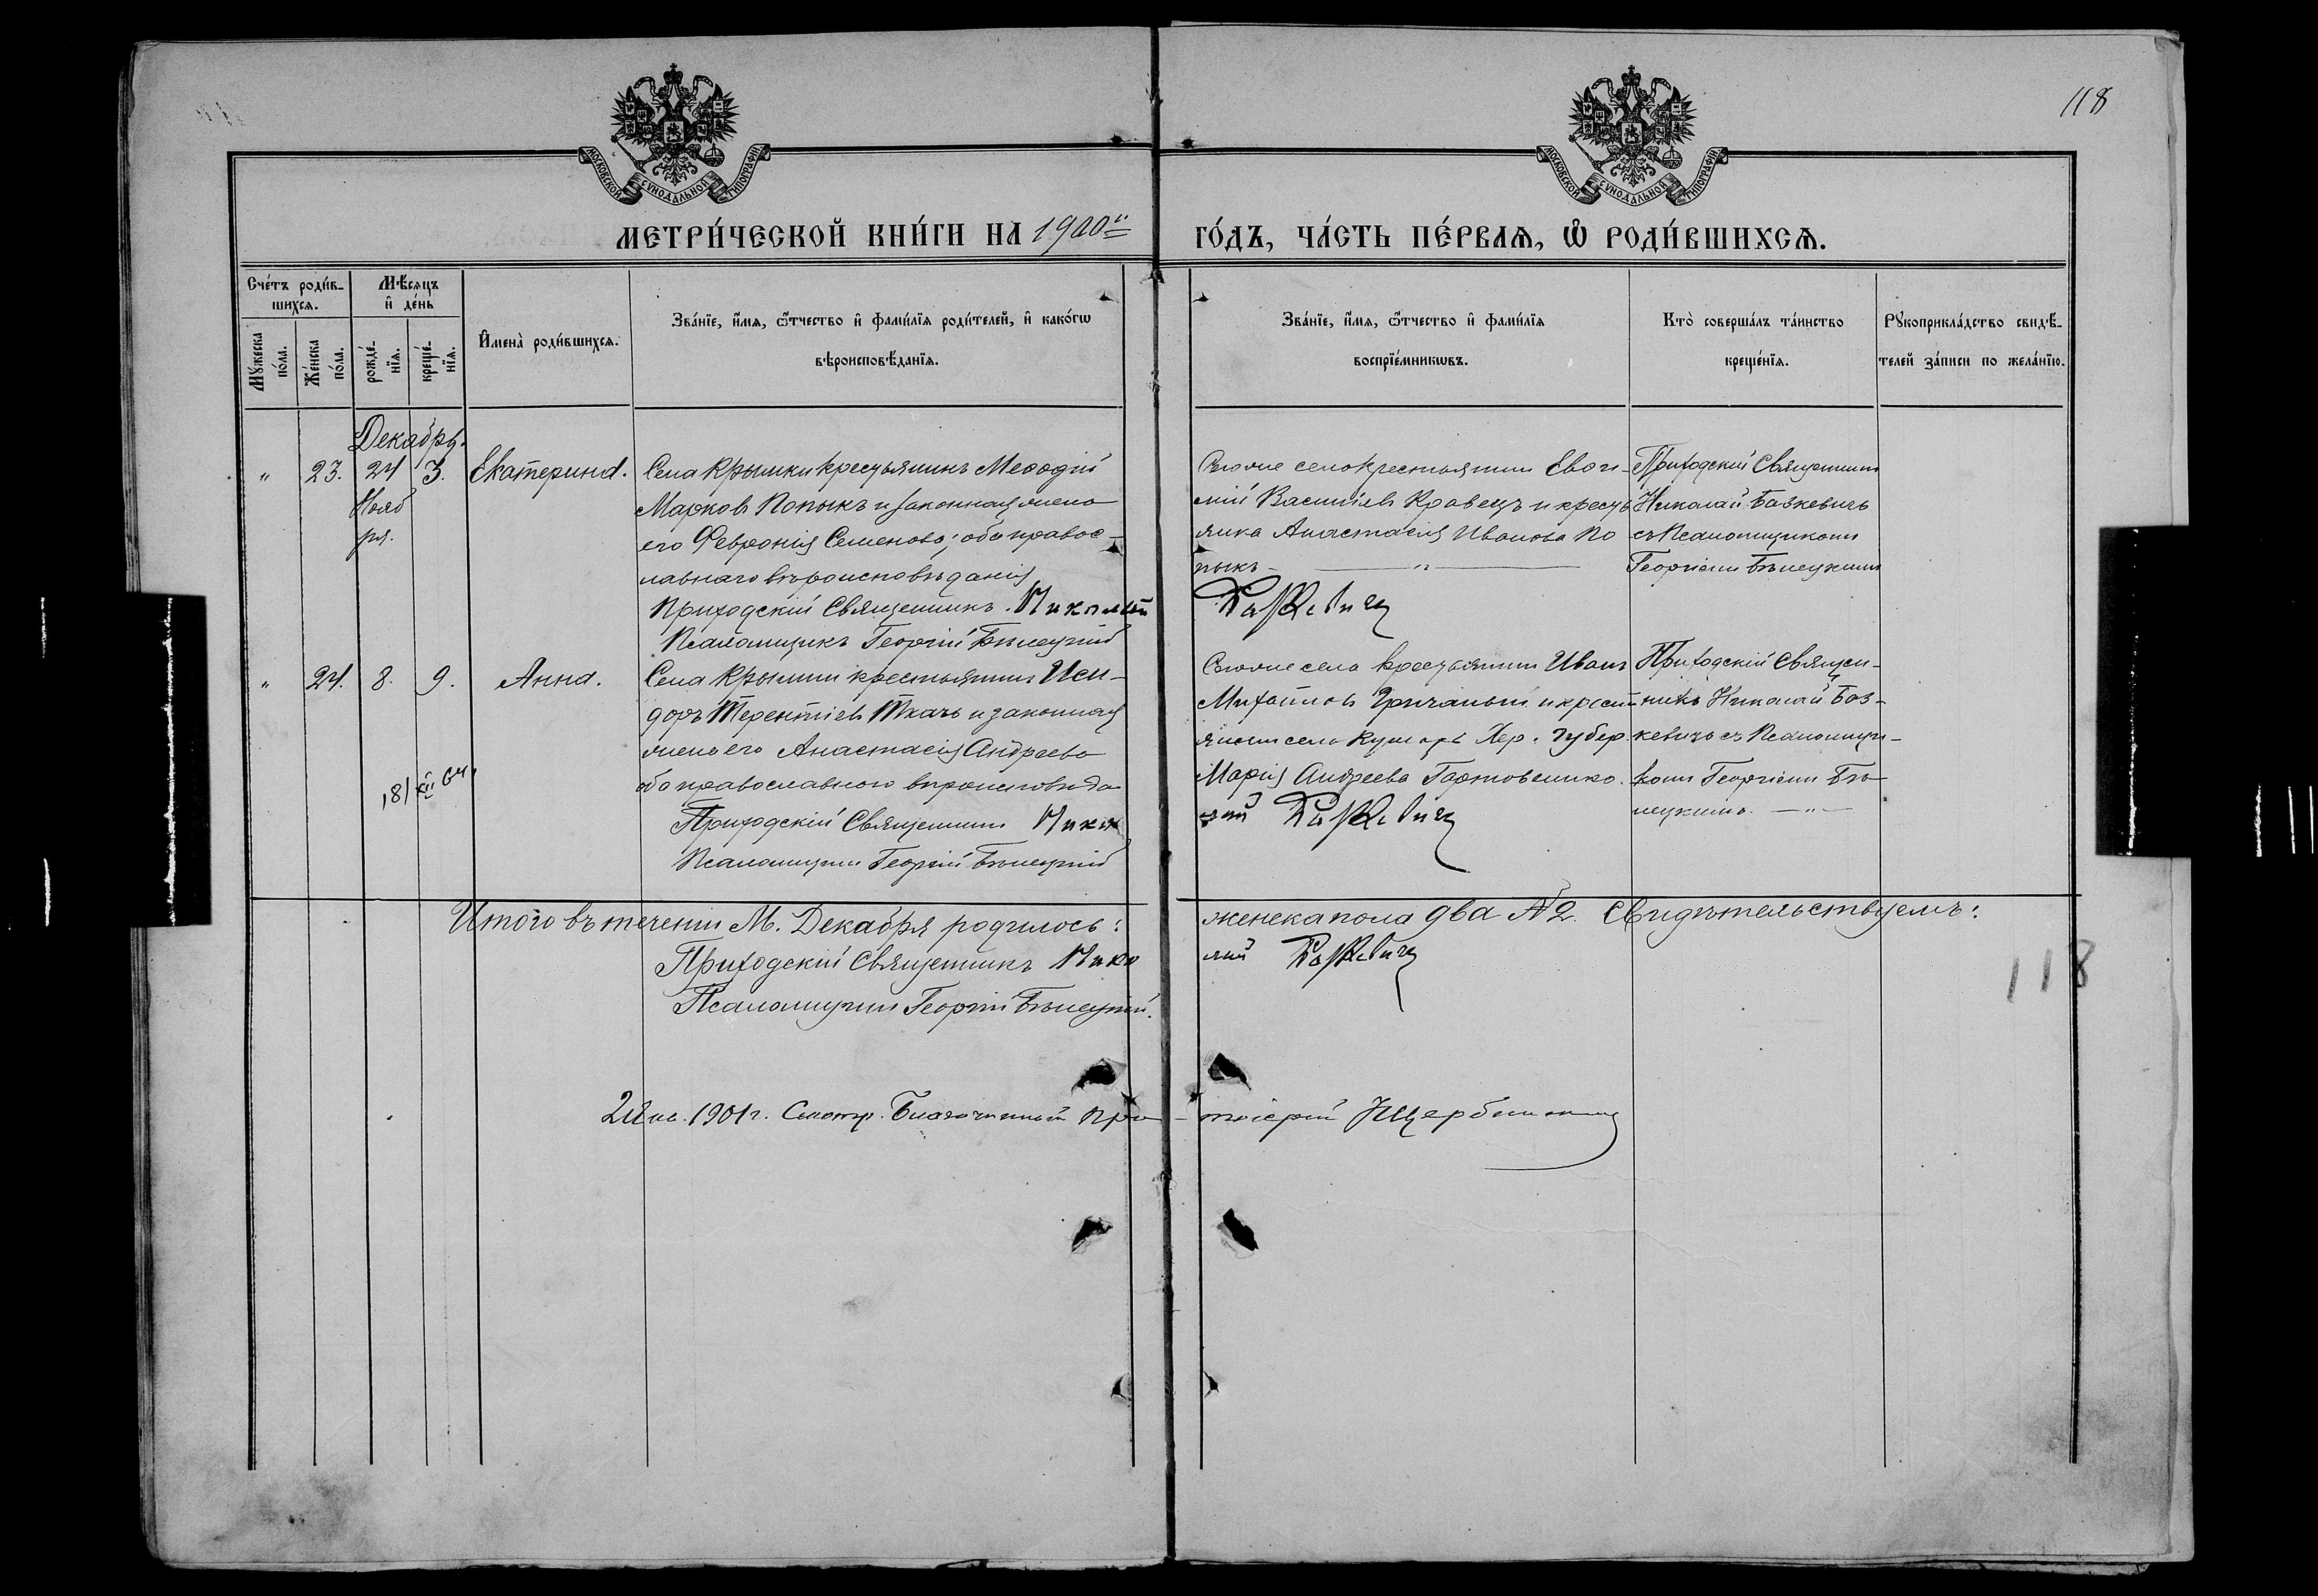 118
МОСКОВСКОЙ СУНОДАЛЬНОЙ ТИПОГРАФІИ
МОСКОВСКОЙ СУНОДАЛЬНОЙ ТИПОГРАФІИ
МЕТРИ́ЧЕСКОЙ КНИ́ГИ НА 1900й ГО́ДЪ, ЧА́СТЬ ПЕ́РВАѦ, Ѡ҆ РОДИ́ВШИХСѦ.
Сче́тъ роди́в-
шихсѧ.
Мꙋ́жеска
по́ла.
Же́нска
по́ла.
Мѣ́сѧцъ
и҆ де́нь
рожде́-
нїѧ.
креще́-
нїѧ.
И҆мена̀ роди́вшихсѧ.
Зва́нїе, и҆́мѧ, ѻ҆́тчество и҆ фами́лїѧ роди́телей, и҆ како́гѡ
вѣроисповѣ́данїѧ.
Зва́нїе, и҆́мѧ, ѻ҆́тчество и҆ фами́лїѧ
воспрїе́мникѡвъ.
Кто̀ соверша́лъ та́инство
креще́нїѧ.
Рꙋкоприкла́дство свидѣ́-
телей за́писи по жела́нїю.
Декабрь.
" 23. 24 3. Екатерина.
Нояб
ря.
Села Крымки крестьянинъ Меѳодій
Марковъ Попыкъ и законная жена
его Февронія Семенова; оба правос-
лавнаго вѣроисповѣданія
Приходскій Священникъ. Николай
Псаломщикъ Георгій Бѣлецкій
Тогоже села крестьянинъ Евѳи-
мій Васильевъ Кравецъ и кресть
янка Анастасія Иванова По
пыкъ — " —
Базкевичъ
Приходскій Священникъ
Николай Базкевичъ
съ Псаломщикомъ
Георгіемъ Бѣлецкимъ
" 24. 8. 9. Анна.
18/XII 64.
Села Крымки крестьянинъ Иси-
доръ Терентіевъ Ткачъ и законная
жена его Анастасія Андреева
оба православнаго вѣроисповѣда
Приходскій Священникъ Нико
Псаломщикъ Георгій Бѣлецкій
Тогоже села крестьянинъ Иванъ
Михайловъ и крест
села Хер. Губер.
Марія Андреева
лай Базкевичъ
Приходскій Священ-
никъ Николай Баз-
кевичъ съ Псаломщи-
комъ Георгіемъ Бѣ
лецкимъ. — " —
Итого въ теченіи М. Декабря родилось: женска пола два № 2. Свидѣтельствуемъ:
Приходскій Священникъ Нико лай Базкевичъ
Псаломщикъ Георгій Бѣлецкій.
118
1901 г. Смотр. Благочинный Про- тоіерей Н Щерб